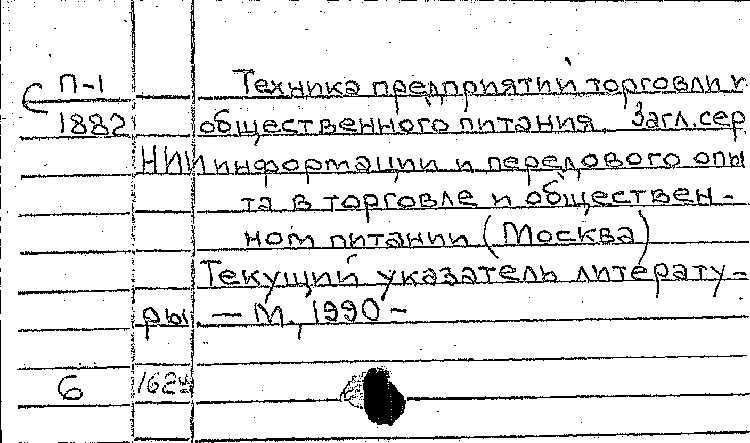 П-1 Техника предприятий торговли и
1882 общественного питания. Загл. сер
НИИ информации и передового опы
та в торговле и обществен-
ном питании (Москва)
Текущий указатель литерату-
ры. — М., 1990 –
6 162